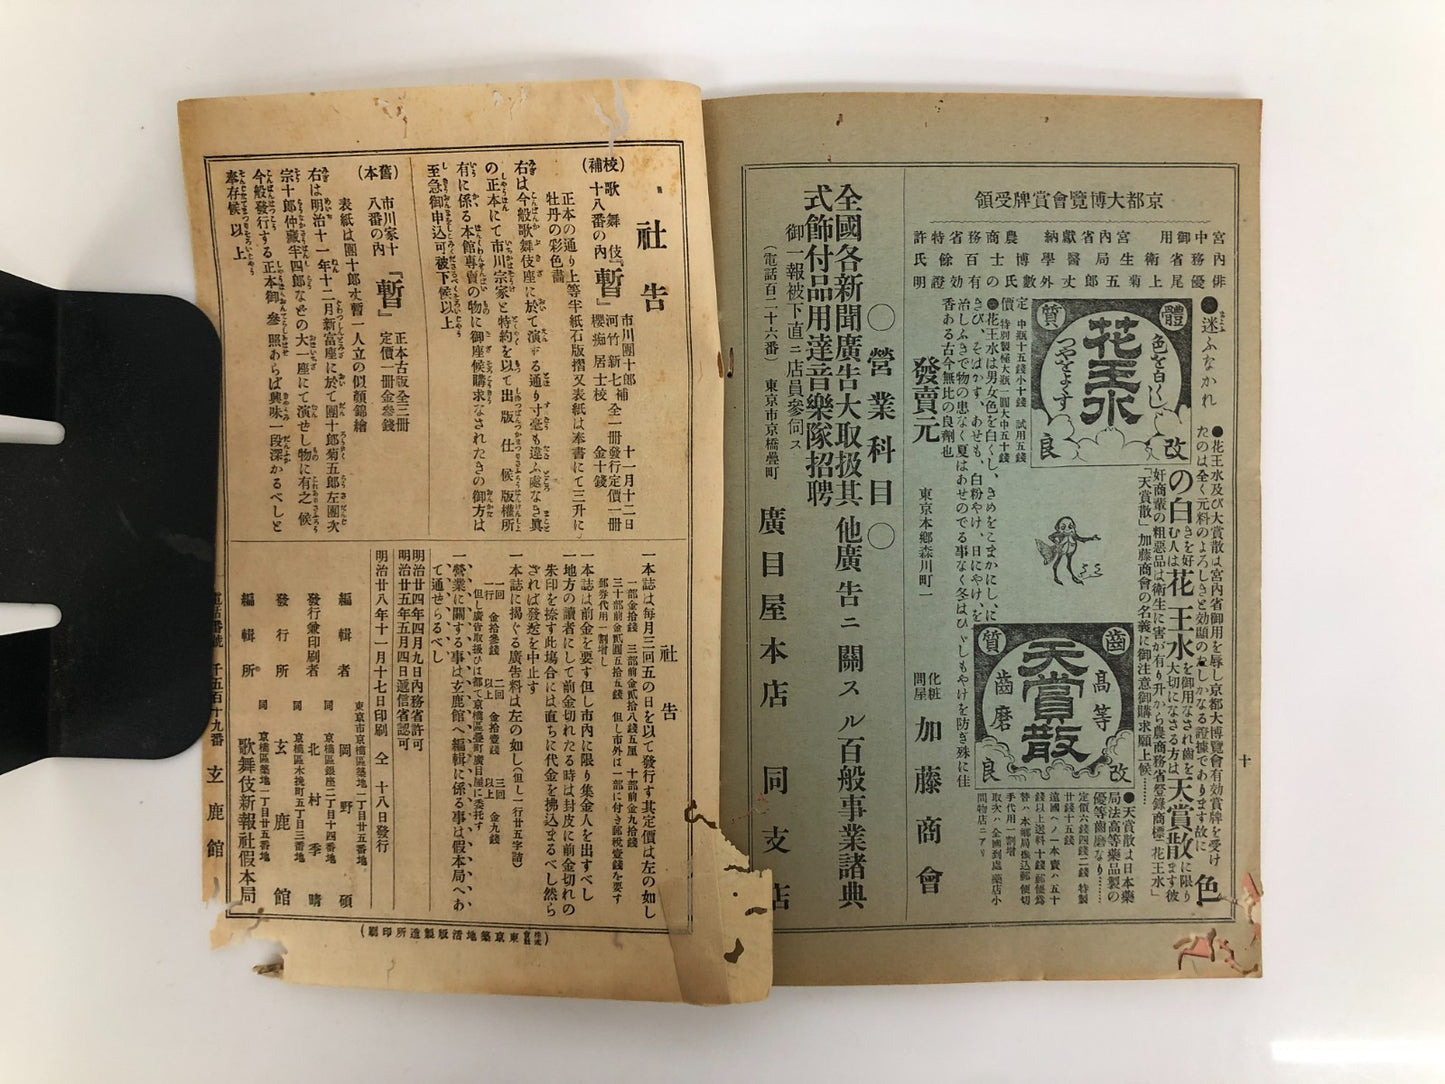 京都大博覽會賞牌受領
宮中御用 宮內省獻納 農商務省特許
內務省衛生局 醫學博士の百餘氏
俳優尾上菊五郎丈外數氏の有効證明
●迷ふなかれ
體質改良
色を白くし
花王水
つやをよくす
定價 中瓶十五錢 小十錢 試用五錢
特別製極大瓶一圓 大中五十錢
●花王水は男女色を白くし、きめをこまかにし、に
きび、そばかす、あせも、白粉やけ、日にやけ、を
治しふきで物の患なく夏はあせのでる事なく冬はひゞしもやけを防ぎ殊に佳
香ある古今無比の良劑也
發賣元
東京本郷森川町一
化粧問屋 加藤商會
●花王水及び天賞散は宮内省御用を辱し京都大博覽會有効賞牌を受け
たのは全く元料のよろしきと効顯のいちじるしかなる證據であります故に色
の白きを好む人は花王水を御用なされ齒を大切になさる方は天賞散に限ります彼
奸商輩の粗惡品は衛生に害が有り升から農商務省登錄商標「花王水」
「天賞散」加藤商會の名義に御注意御購求願上候
高等齒磨
天賞散
齒質改良
●天賞散は日本藥
局法高等藥品製の
優等齒磨なり
定價六錢四錢二錢 特製
廿錢十五錢
遠國ヘノ一本賣ハ五十
錢以上送料十錢郵便爲
替ハ本郷局振込郵便切
手代用一割增
取次ハ全國到處藥店小
間物店ニアリ
十
○營業科目○
全國各新聞廣告大取扱其他廣告ニ關スル百般事業諸興
式飾付品用達音樂隊招聘
御一報被下直ニ店員參伺ス
(電話百二十六番) 東京市京橋疊町
廣目屋本店
同支店
社告
(校補)歌舞伎十八番の内『暫』
市川團十郎
河竹新七補
櫻痴居士校
十一月十二日
全一冊發行定價一冊
金十錢
正本の通り上等半紙石版摺又表紙は奉書にて三升に
牡丹の彩色畵
右は今般歌舞伎座に於て演ずる通り寸毫も違ふ處なき眞
の正本にて市川宗家と特約を以て出版仕候版權所
有に係る本館專賣の物に御座候購求なされたきの御方は
至急御申込可被下候以上
(舊本)市川家十八番の内『暫』
正本古版全三冊
定價一冊金參錢
表紙は團十郎丈暫一人立の似顏錦繪
右は明治十一年十二月新富座に於て團十郎菊五郎左團次
宗十郎仲藏半四郎などの大一座にて演せし物に有之候
今般發行する正本御參照あらば興味一段深かるべしと
奉存候以上
社告
一本誌は毎月三回五の日を以て發行す其定價は左の如し
一部金拾錢 三部前金貳拾八錢五厘 十部前金九拾錢
三十部前金貳圓五拾五錢 但し市外は一部に付き郵稅壹錢を要す
郵劵代用一割增し
一本誌は前金を要す但し市内に限り集金人を出すべし
一地方の讀者にして前金切れたる時は封皮に前金切れの
朱印を捺す此場合には直ちに代金を拂込まるべし然ら
されば發送を中止す
一本誌に揭ぐる廣告料は左の如し(但し一行廿五字詰)
一回 一行 金拾參錢 二回以上 金拾壹錢 三回以上 金九錢
但し廣告取扱ひは都て京橋區疊町廣目屋に委托す
一營業に關する事は玄鹿館へ編輯に係る事は假本局へあ
て通せらるべし
明治廿四年四月九日內務省許可
明治廿五年五月四日遞信省認可
明治廿八年十一月十七日印刷 仝 十八日發行
東京市京橋區築地一丁目廿五番地
編輯者 岡野碩
同 京橋區銀座二丁目十四番地
發行兼印刷者 北村季晴
同 京橋區木挽町五丁目三番地
發行所 玄鹿館
同 京橋區築地一丁目廿五番地
編輯所 歌舞伎新報社假本局
電話番號 千五百十九番 玄鹿館
(株式會社東京築地活版製造所印刷)